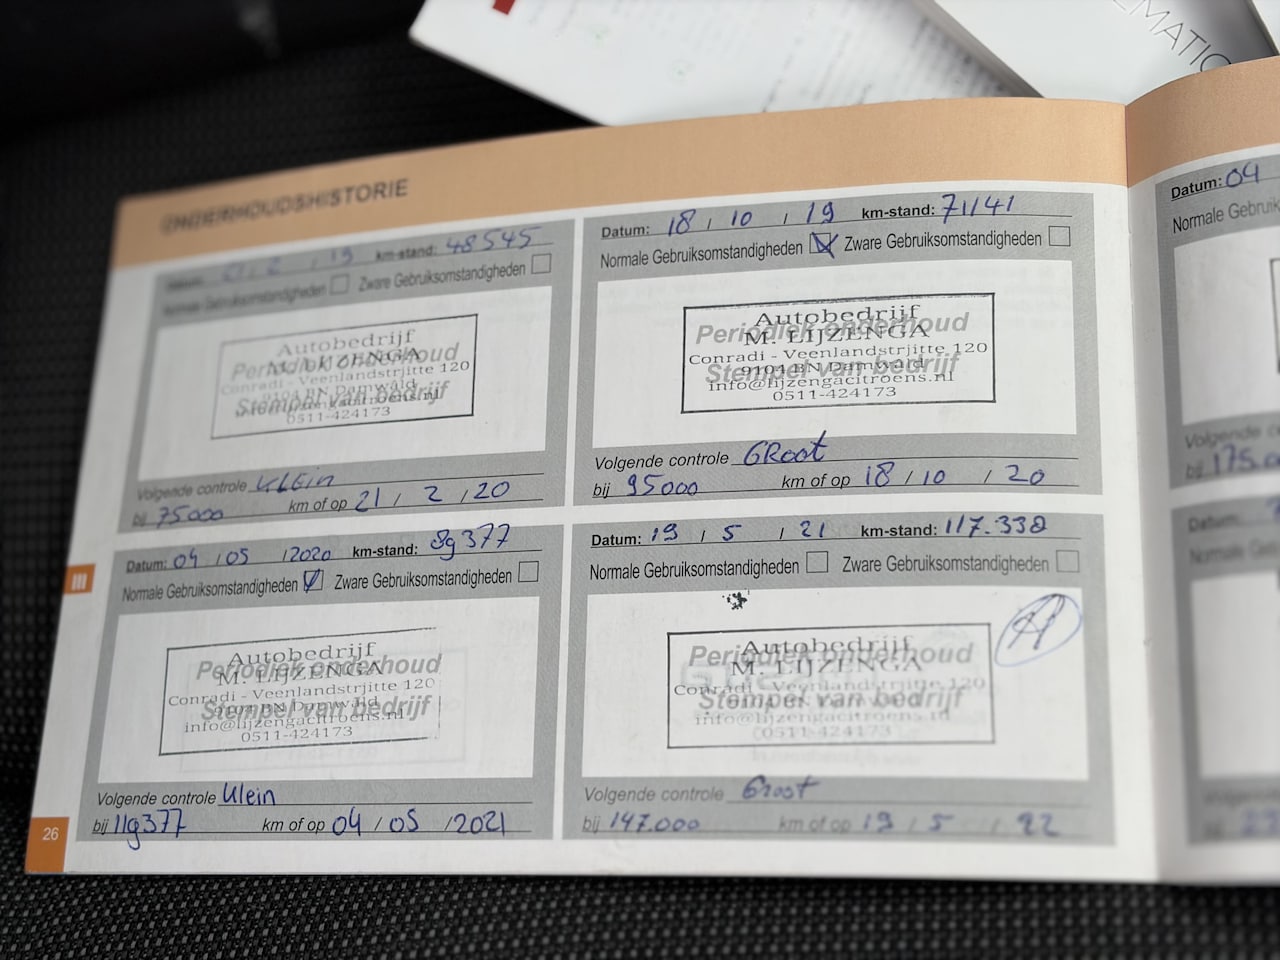 EMATIC
ONDERHOUDSHISTORIE
Datum: 21 / 2 / 19 km-stand: 48545
Normale Gebruiksomstandigheden Zware Gebruiksomstandigheden
Periodiek onderhoud
Stempel van bedrijf
Autobedrijf
M. LIJZENGA
Conradi - Veenlandstrjitte 120
9104 BN Damwâld
info@lijzengacitroens.nl
0511-424173
Volgende controle Klein
bij 75000 km of op 21 / 2 / 20
Datum: 18 / 10 / 19 km-stand: 71141
Normale Gebruiksomstandigheden Zware Gebruiksomstandigheden
Periodiek onderhoud
Stempel van bedrijf
Autobedrijf
M. LIJZENGA
Conradi - Veenlandstrjitte 120
9104 BN Damwâld
info@lijzengacitroens.nl
0511-424173
Volgende controle GRoot
bij 95000 km of op 18 / 10 / 20
Datum: 04 / 05 / 2020 km-stand: 89377
Normale Gebruiksomstandigheden Zware Gebruiksomstandigheden
Periodiek onderhoud
Stempel van bedrijf
Autobedrijf
M. LIJZENGA
Conradi - Veenlandstrjitte 120
9104 BN Damwâld
info@lijzengacitroens.nl
0511-424173
Volgende controle Klein
bij 119377 km of op 04 / 05 / 2021
Datum: 19 / 5 / 21 km-stand: 117.338
Normale Gebruiksomstandigheden Zware Gebruiksomstandigheden
Periodiek onderhoud
Stempel van bedrijf
Autobedrijf
M. LIJZENGA
Conradi - Veenlandstrjitte 120
info@lijzengacitroens.nl
0511-424173
Volgende controle Groot
bij 147.000 km of op 19 / 5 / 22
III
26
Datum: 04
Normale Gebruik
Volgende
bij 175.0
Datum:
Normale